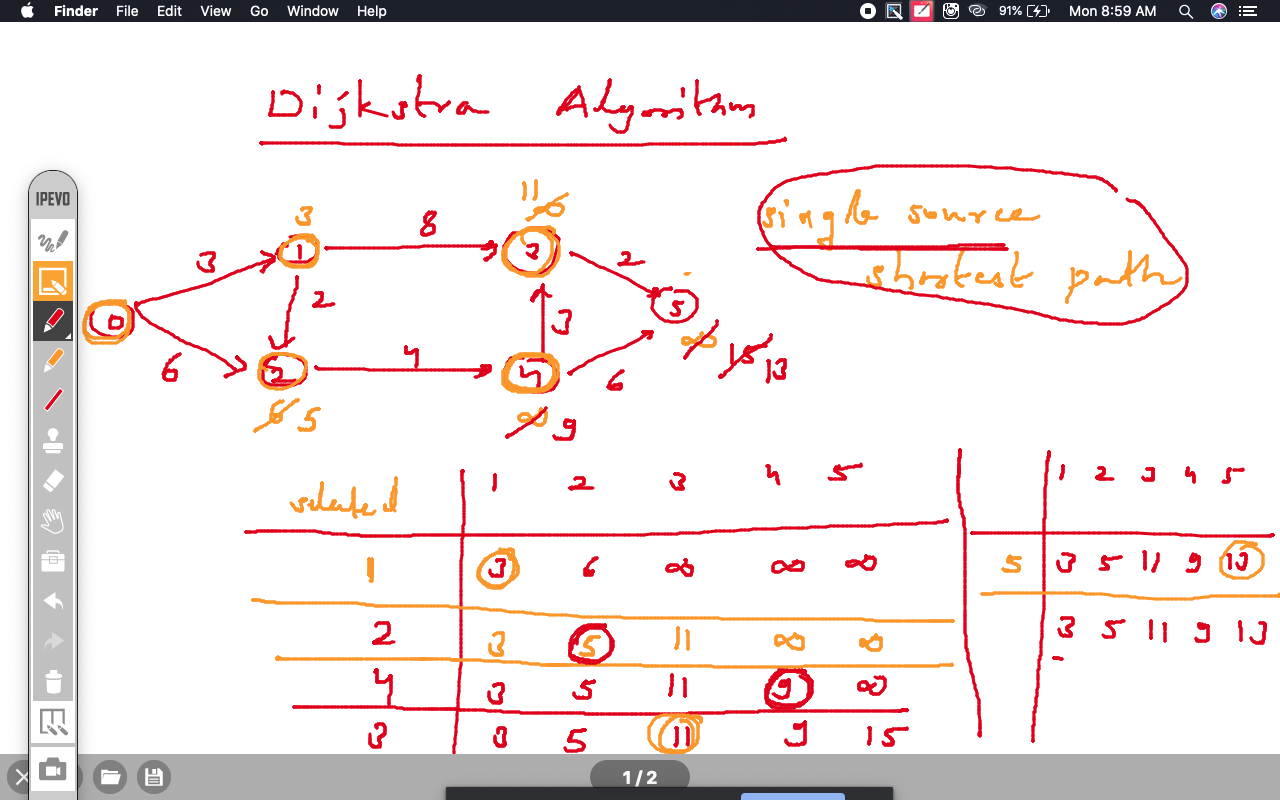 Finder File Edit View Go Window Help 91% Mon 8:59 AM
Dijkstra Algorithm
IPEVO
single source
shortest path
11 ∞
3
8
3
1
3
2
0
2
5
3
6
2
4
4
6
∞ 15 13
6 5
∞ 9
selected 1 2 3 4 5
1 3 6 ∞ ∞ ∞
2 3 5 11 ∞ ∞
4 3 5 11 9 ∞
3 3 5 11 9 15
1 2 3 4 5
5 3 5 11 9 13
3 5 11 9 13
1 / 2